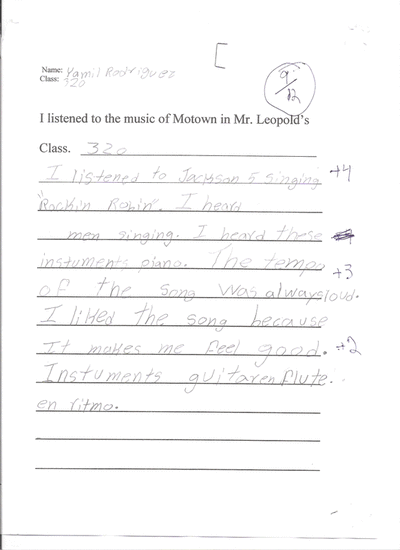 Name: Yamil Rodriguez
Class: 320
9/12
I listened to the music of Motown in Mr. Leopold's
Class. 320
I listened to Jackson 5 singing +4
"Rockin Robin". I heard
men singing. I heard these
instuments piano. The tempo +3
of the song was always loud.
I liked the song because
It makes me feel good. +2
Instuments guitar en flute.
en ritmo.